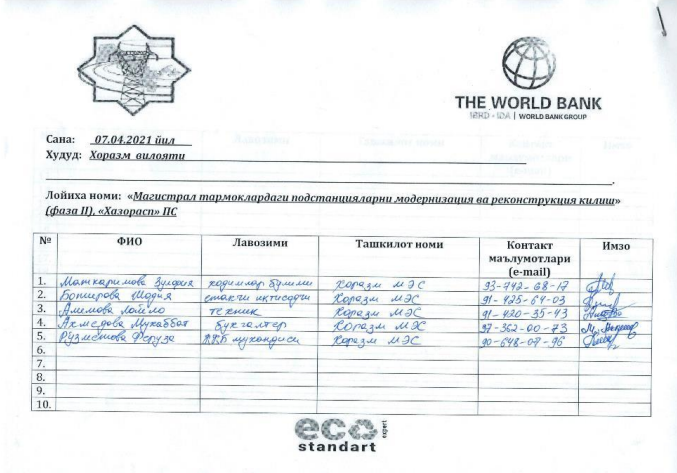 THE WORLD BANK
IBRD • IDA | WORLD BANK GROUP
Сана: 07.04.2021 йил
Худуд: Хоразм вилояти
Лойиха номи: «Магистрал тармоклардаги подстанцияларни модернизация ва реконструкция килиш»
(фаза II), «Хазорасп» ПС
№ ФИО Лавозими Ташкилот номи Контакт маълумотлари (e-mail) Имзо
1. Маткаримова Зулфия ходимлар булими Хоразм МЭС 93-742-68-17
2. Боширова Шодия етакчи иктисодчи Хоразм МЭС 91-425-64-03
3. Алимова Лойло техник Хоразм МЭС 91-420-35-43
4. Ахмедова Мухаббат бухгалтер Хоразм МЭС 97-362-00-73
5. Рузметова Феруза мухандиси Хоразм МЭС 90-648-07-96
6.
7.
8.
9.
10.
eco expert
standart